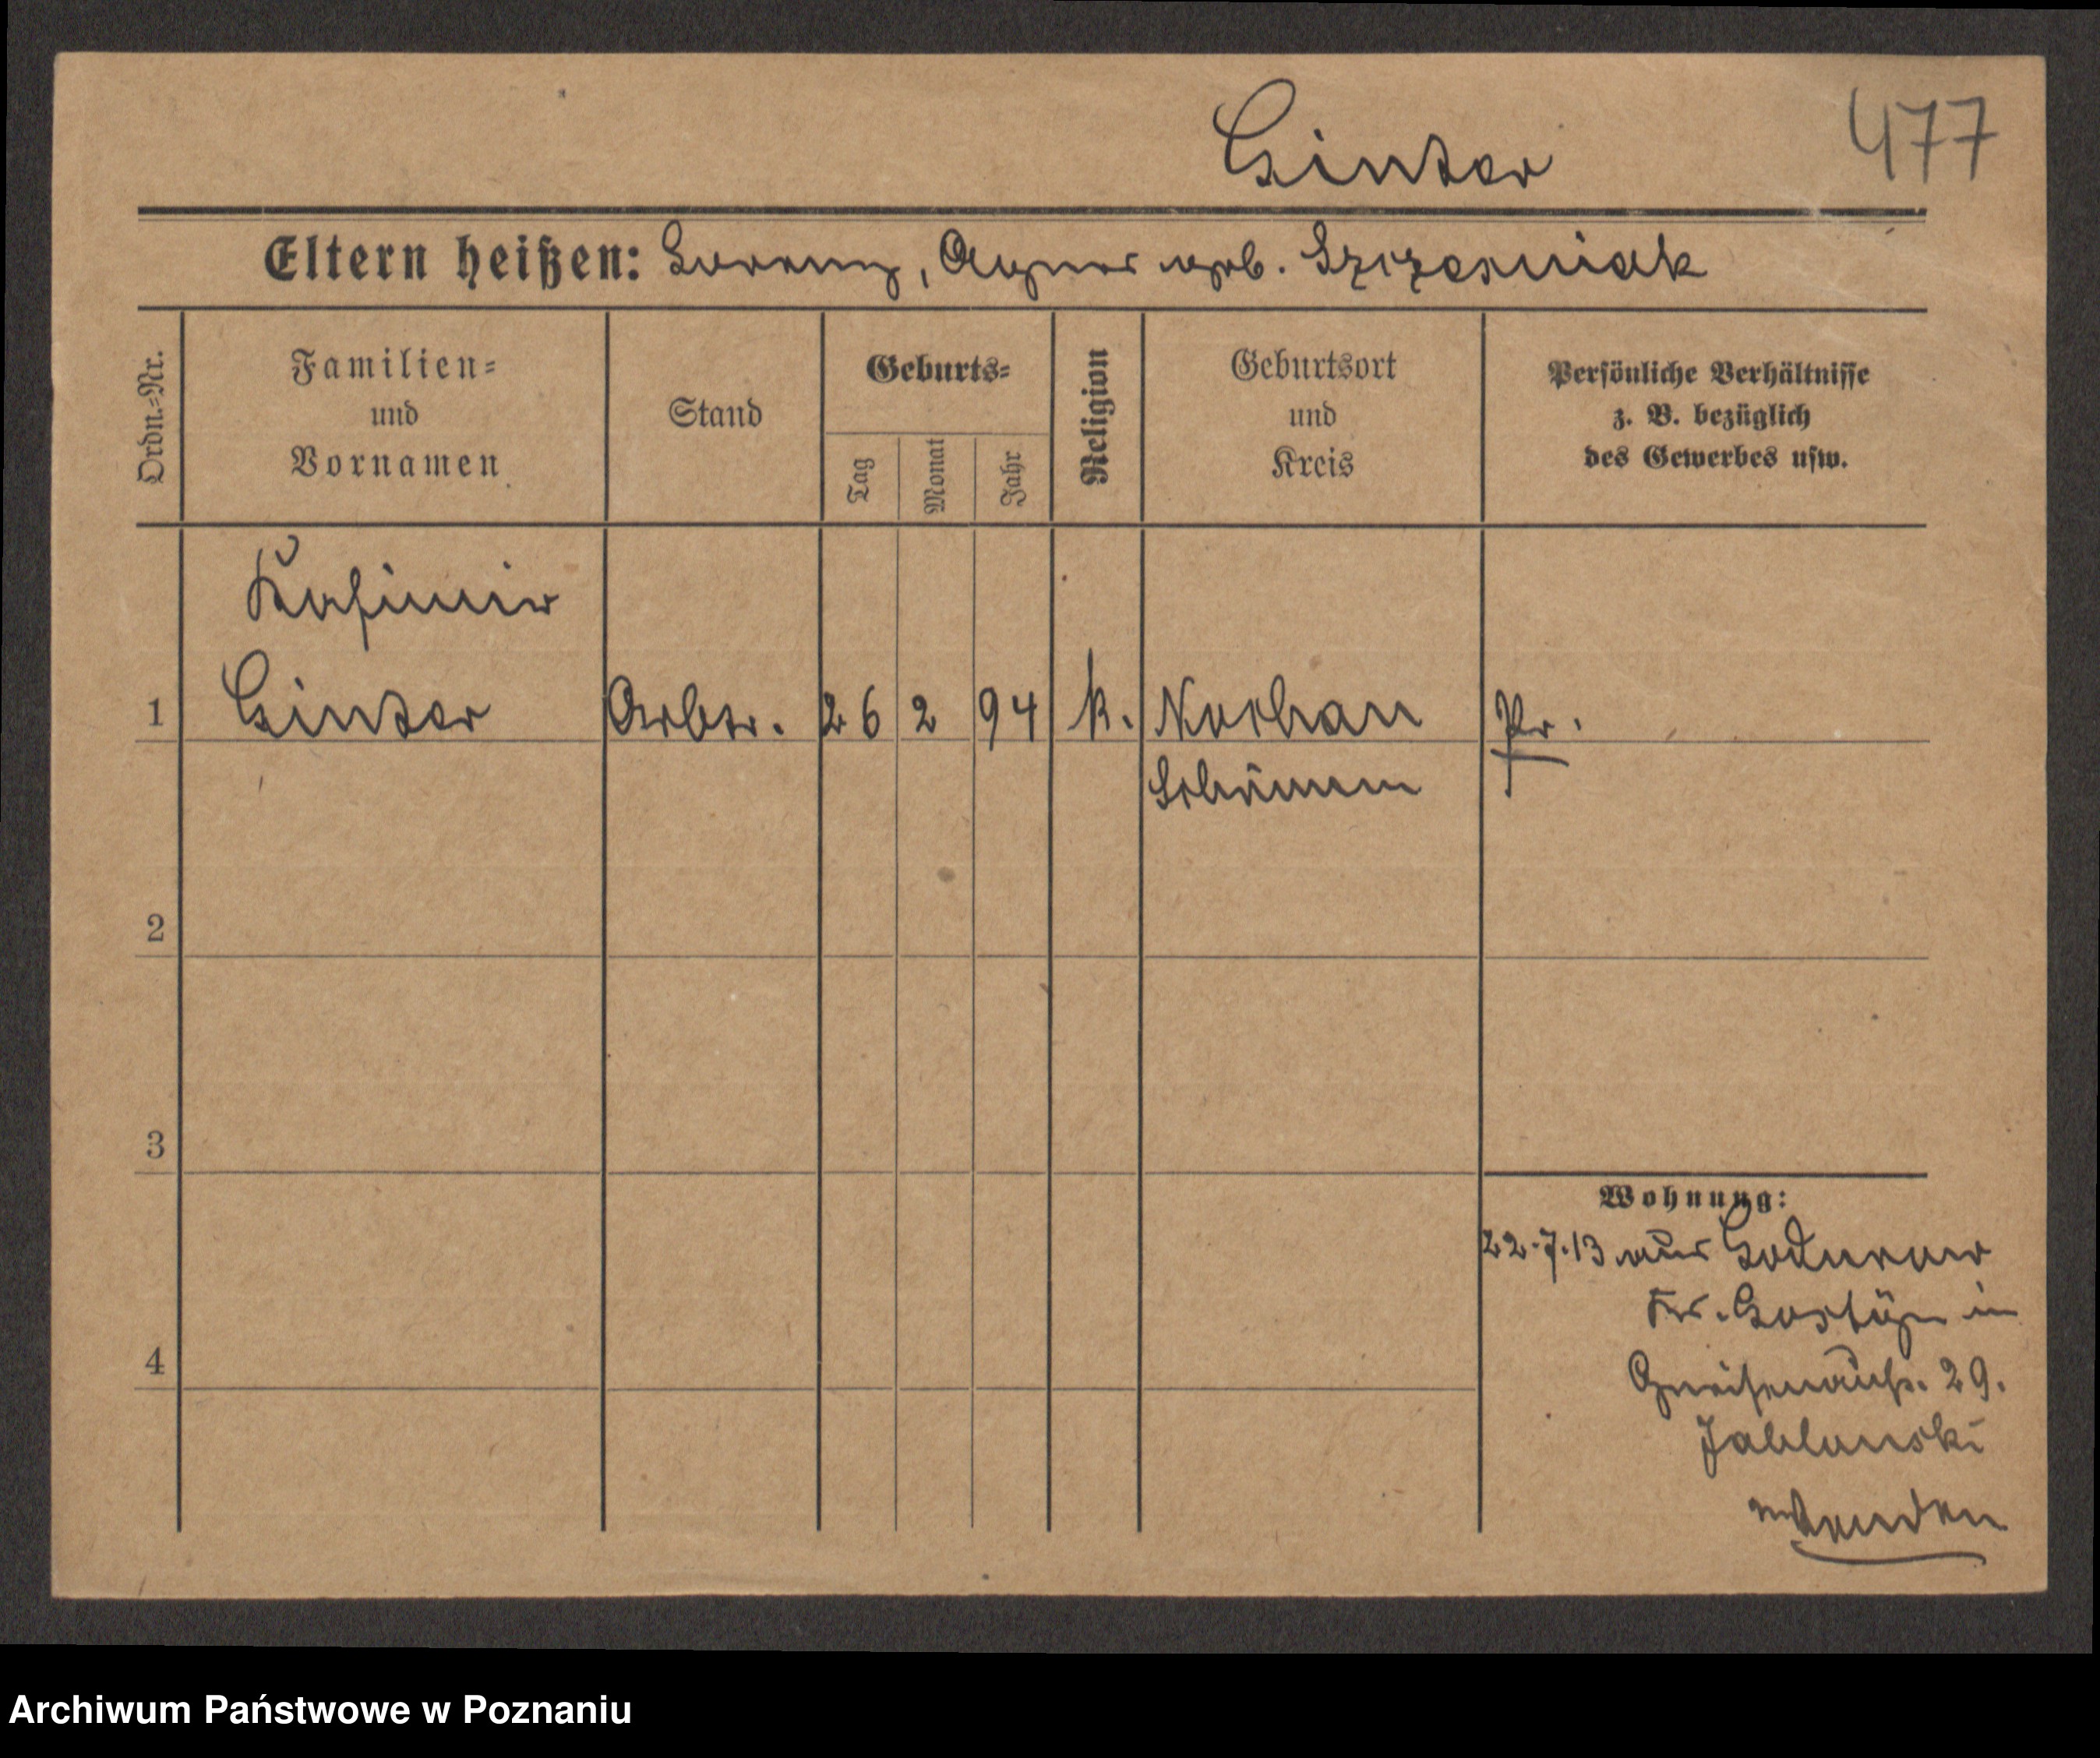 Ginter
477
Eltern heißen: Lorenz, Agnes geb. Szczesniak
Ordn.-Nr.
Familien-
und
Vornamen
Stand
Geburts-
Tag
Monat
Jahr
Religion
Geburtsort
und
Kreis
Persönliche Verhältnisse
z. B. bezüglich
des Gewerbes usw.
Kasimir
1 Ginter Arbtr. 26 2 94 k. Nochau Pr.
Schrimm
2
3
4
Wohnung:
22.7.13 aus Godurowo
Kr. Gostyn in
Gneisenaustr. 29.
Jablonski
wenden
Archiwum Państwowe w Poznaniu